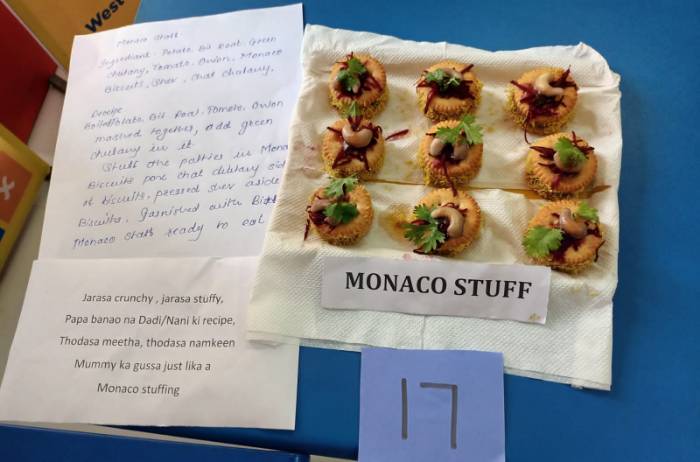 West
Monaco Stuff.
Ingredient - Potato, Bit Root, Green
chutany, Tomato, Onion, Monaco
Biscuits, Shev, Chat chatany.
Boiled Potato, Bit Root, Tomato, Onion
mashed together, add green
chutany in it.
Stuff the patties in Mona
Biscuits chat chatany
of biscuits, pressed shev aside
Biscuits, garnished with
Monaco Staff ready to eat
Jarasa crunchy , jarasa stuffy,
Papa banao na Dadi/Nani ki recipe,
Thodasa meetha, thodasa namkeen
Mummy ka gussa just lika a
Monaco stuffing
MONACO STUFF
17